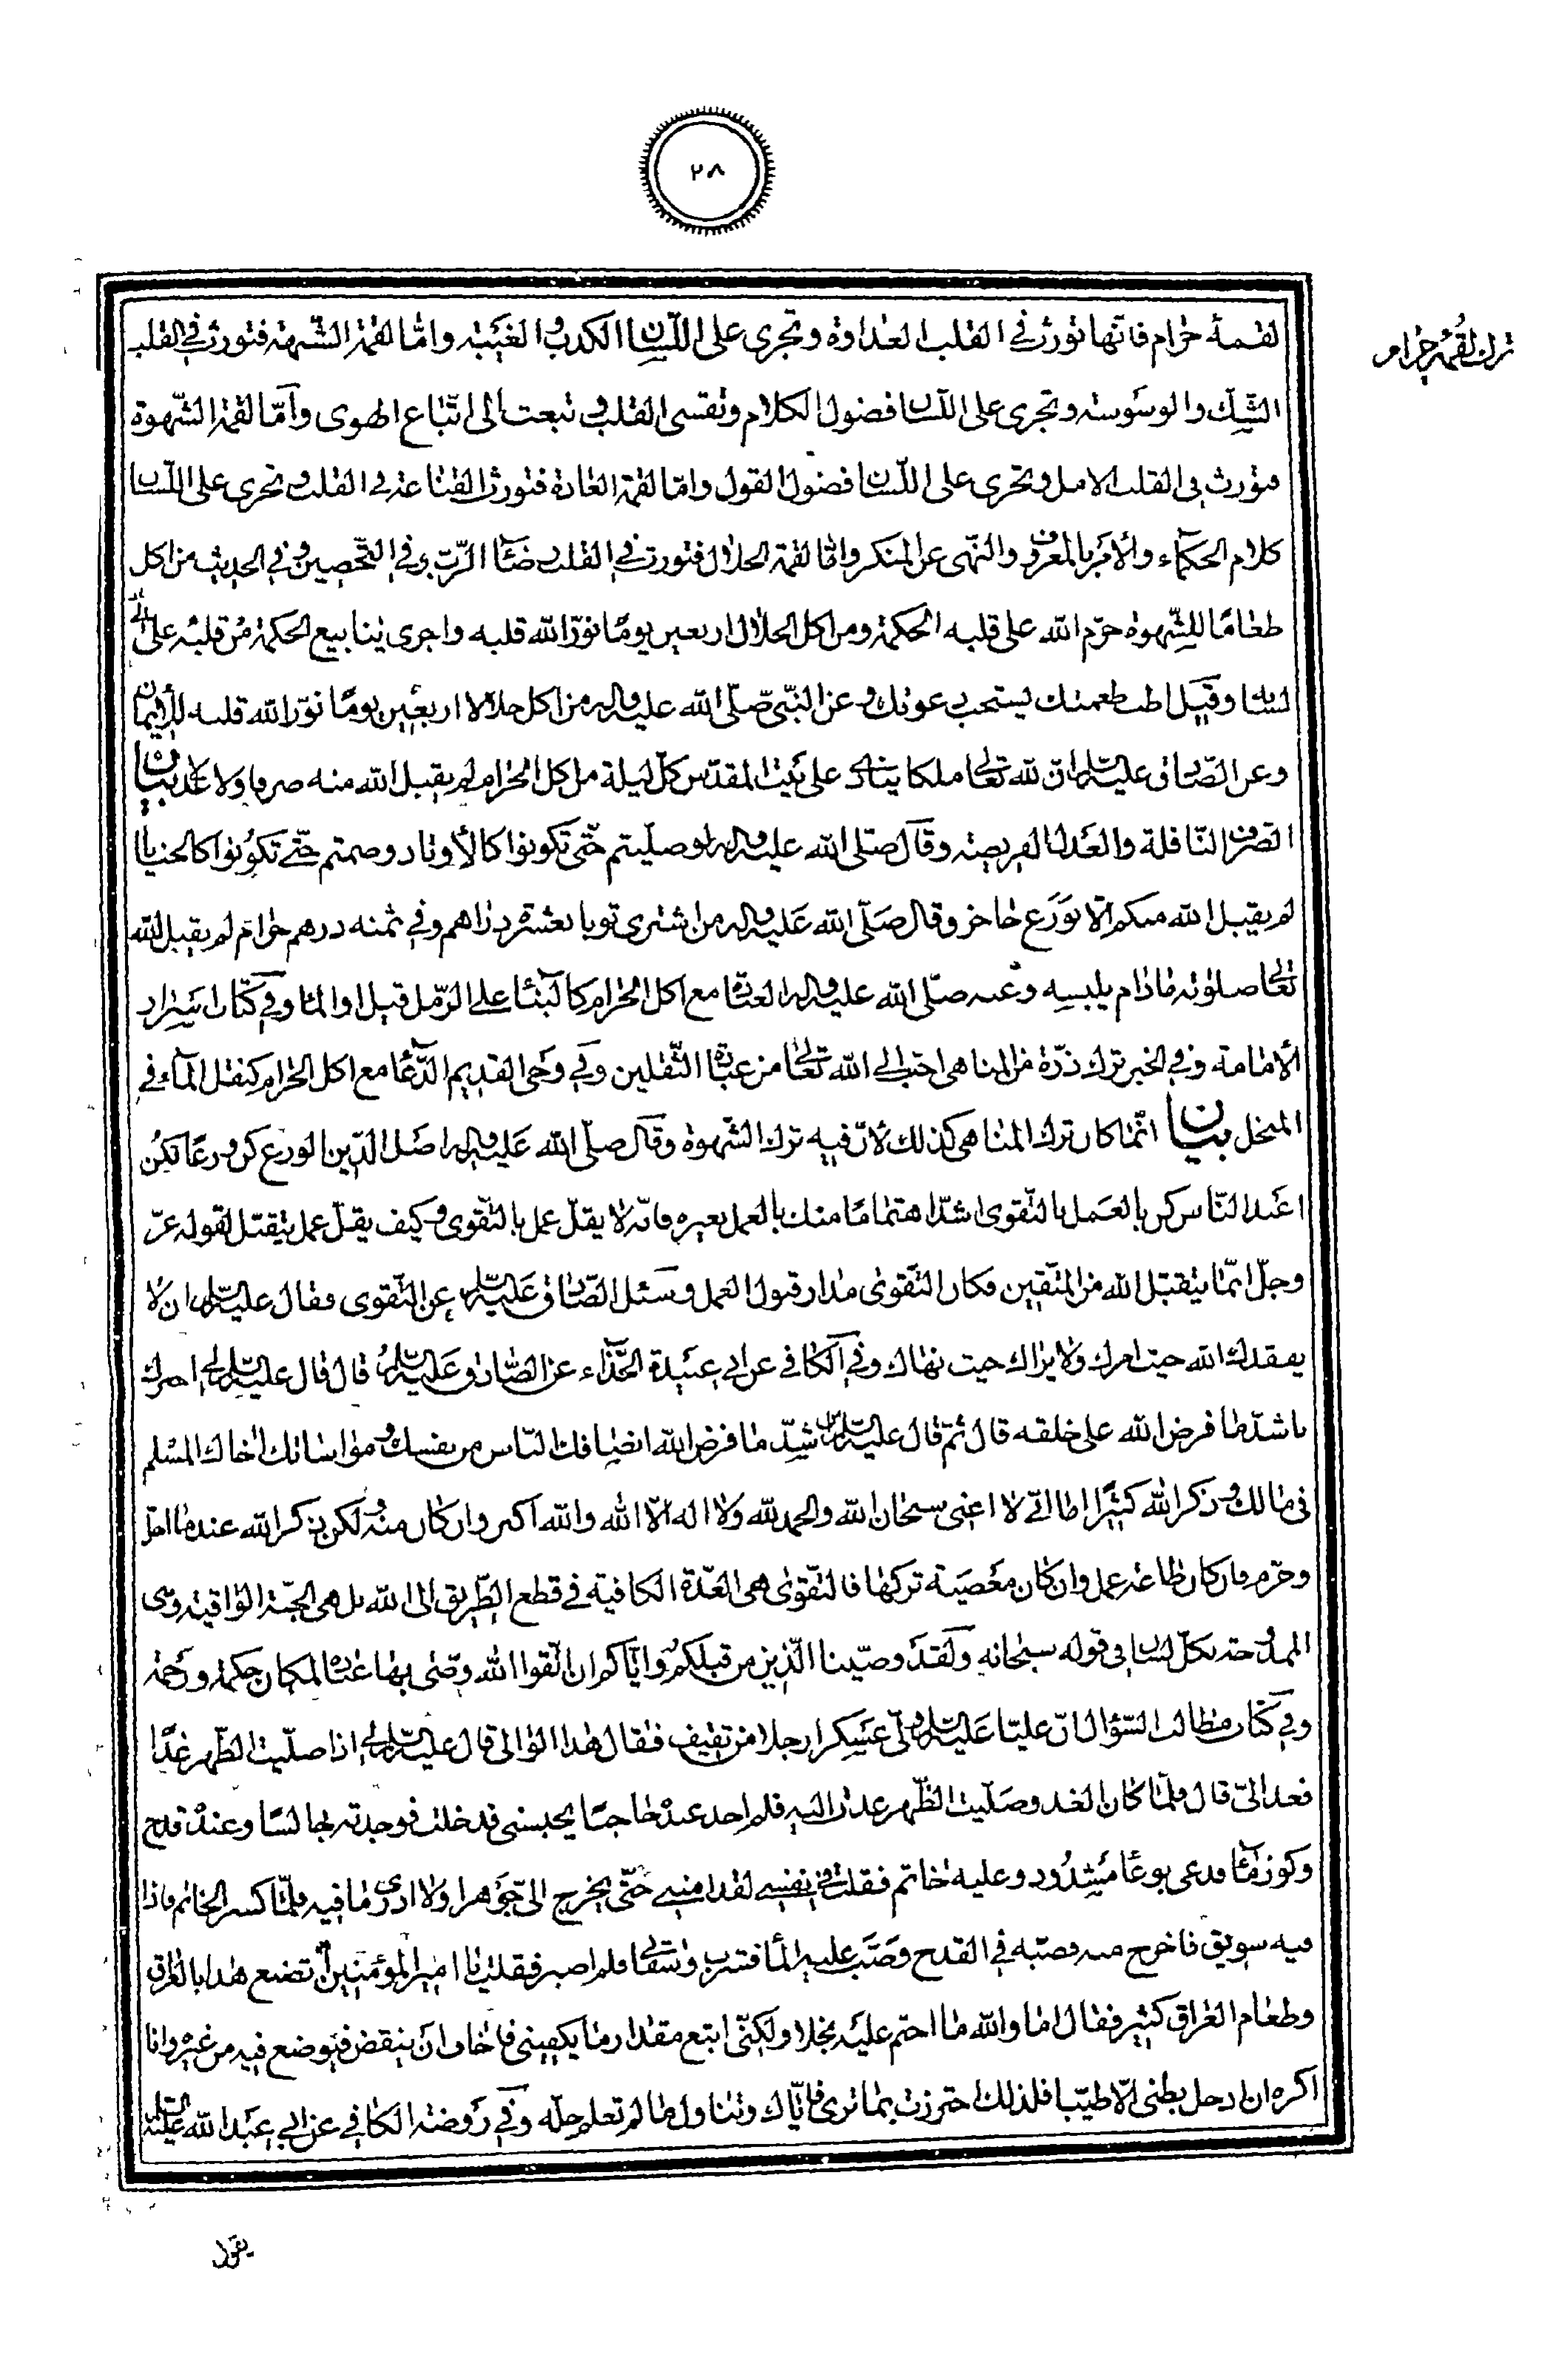 ٢٨
ترك لقمة حرام
لقمة حرام فانها تورث في القلب العداوة وتجرى على اللسان الكذب والغيبة وامّا لقمة الشّبهة فتورث في القلب
الشّك والوسوسة وتجرى على اللسان فضول الكلام وتقسى القلب وتبعث الى اتّباع الهوى وامّا لقمة الشّهوة
فتورث فى القلب الامل وتجرى على اللّسان فضول القول وامّا لقمة العادة فتورث القناعة فى القلب وتجرى على اللّسان
كلام الحكماء والأمر بالمعروف والنّهى عن المنكر وامّا لقمة الحلال فتورث في القلب رضاء الرّبّ وفي التّحصين وفي الحديث من اكل
طعامًا للشّهوة حرّم الله على قلبه الحكمة ومن اكل الحلال اربعين يومًا نوّر الله قلبه واجرى ينابيع الحكمة من قلبه على
لسانه وقيل اطب طعمتك يستجب دعوتك وعن النّبىّ صلّى الله عليه وآله من اكل حلالا اربعين يومًا نوّر الله قلبه للأيمان
وعن الصّادق عليه السّلم ان لله تعالى ملكا ينادى على بيت المقدّس كلّ ليلة من اكل الحرام لم يقبل الله منه صرفا ولا عدلا بيان
الصّرف النّافلة والعدل الفريضة وقال صلّى الله عليه وآله لو صلّيتم حتّى تكونوا كالأوتاد وصمتم حتّى تكونوا كالحنايا
لم يقبل الله منكم الّا بورع حاجز وقال صلّى الله عليه وآله من اشترى ثوبا بعشرة دراهم وفي ثمنه درهم حرام لم يقبل الله
تعالى صلوته مادام يلبسه وعنه صلّى الله عليه وآله العبادة مع اكل الحرام كالبناء على الرّمل قيل او الماء وفي كتاب اسرار
الأمامة وفي الخبر ترك ذرّة من المناهى احبّ الى الله تعالى من عبادة الثّقلين وفي وحى القديم الدّعاء مع اكل الحرام كنقل الماء في
المنخل بيان انّما كان ترك المناهى كذلك لانّ فيه ترك الشّهوة وقال صلّى الله عليه وآله اصل الدّين الورع كن ورعًا تكن
اعبد النّاس كن بالعمل بالتّقوى اشدّ اهتمامًا منك بالعمل بغيره فانّه لا يقلّ عمل بالتّقوى وكيف يقلّ عمل يتقبّل لقوله عزّ
وجلّ انّما يتقبّل الله من المتّقين فكان التّقوى مدار قبول العمل وسئل الصّادق عليه السّلم عن التّقوى فقال عليه السّلم ان لا
يفقدك الله حيث امرك ولا يراك حيث نهاك وفي الكافي عن ابى عبيدة الحذّاء عن الصّادق عليه السّلم قال قال عليه السّلم لى اخبرك
باشدّ ما فرض الله على خلقه قال ثمّ قال عليه السّلم من اشدّ ما فرض الله انصافك النّاس من نفسك ومواساتك اخاك المسلم
فى مالك وذكر الله كثيرًا اما انّي لا اعنى سبحان الله والحمد لله ولا اله الّا الله والله اكبر وان كان منه ولكن ذكر الله عند ما احلّ
وحرّم فان كان طاعة عمل وان كان معصية تركها فالتّقوى هى العدّة الكافية في قطع الطّريق الى الله بل هى الجنّة الواقية وهى
الممدوحة بكلّ لسان فى قوله سبحانه ولقد وصّينا الّذين من قبلكم وايّاكم ان اتّقوا الله وصّى بها عباده لمكان حكمة ورحمة
وفي كتاب مطالب السّؤال انّ عليّا عليه السّلم ولّى عسكرا رجلا من ثقيف فقال هذا الوالى قال عليه السّلم لى اذا صلّيت الظّهر غدًا
فعد الىّ قال فلمّا كان الغد وصلّيت الظّهر عدت اليه فلم اجد عنده حاجبًا يحبسنى فدخلت فوجدته جالسًا وعنده قدح
وكوز ماء فدعى بوعاء مشدود وعليه خاتم فقلت في نفسي لقد امننى حتّى يخرج الىّ جوهرا ولا ادرى ما فيه فلمّا كسر الخاتم فاذا
فيه سويق فاخرج منه فصبّه في القدح وصبّ عليه الماء فشرب وسقانى فلم اصبر فقلت يا امير المؤمنين أتصنع هذا بالعراق
وطعام العراق كثير فقال اما والله ما اختم عليه بخلا ولكنّى ابتع مقدار ما يكفينى فاخاف ان ينقض فيوضع فيه من غيره وانا
اكره ان ادخل بطنى الّا طيّبا فلذلك احترزت بما ترى فايّاك وتناول ما لم تعلم حلّه وفي روضة الكافي عن ابي عبد الله عليه السّلم
يقول